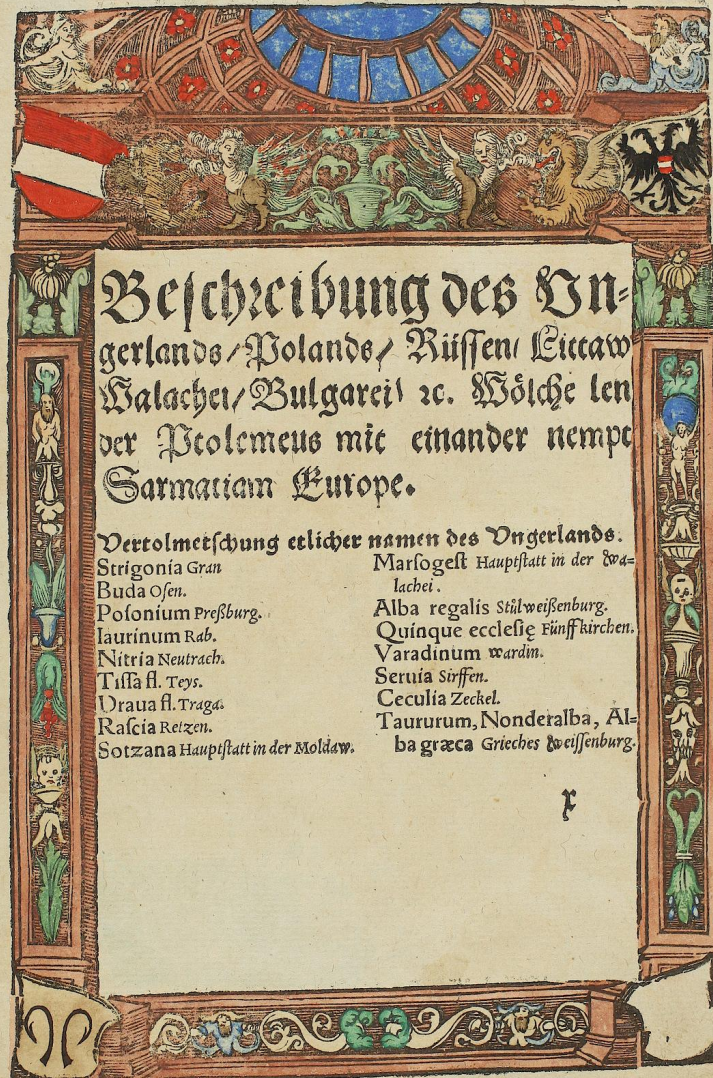 Beschreibung des Vn⸗
gerlands/Polands/ Rüssen/ Littaw
Walachei/Bulgarei/ ꝛc. Wölche len
der Ptolemeus mit einander nempt
Sarmatiam Europe.
Vertolmetschung etlicher namen des Vngerlands.
Strigonia Gran
Buda Ofen.
Posonium Preßburg.
Iaurinum Rab.
Nitria Neutrach.
Tissa fl. Teys.
Draua fl. Traga.
Rascia Retzen.
Sotzana Hauptstatt in der Moldaw.
Marsogest Hauptstatt in der Wa⸗
lachei.
Alba regalis Stůlweißenburg.
Quinque ecclesię Fünffkirchen.
Varadinum wardin.
Seruia Sirffen.
Ceculia Zeckel.
Taururum, Nonderalba, Al⸗
ba græca Grieches Weissenburg.
x